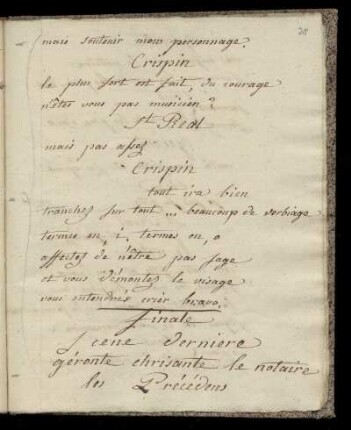 20
mais soutenir mom personnage.
Crispin
le plus fort est fait, du courage
n'êtes vous pas musicien ?
St Real
mais pas assez
Crispin
tout ira bien
tranchez sur tout ... beaucoup de verbiage
termes en, i, termes en, o
affectez de n'être pas sage
et vous démontez le visage
vous entendrés crier bravo.
finale
Scene derniere
géronte chrisante le notaire
les Précédens